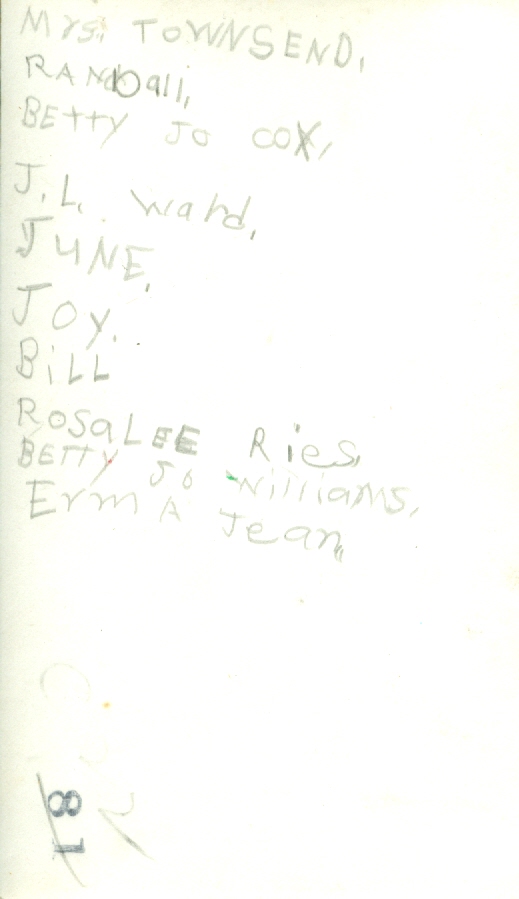 Mrs. TOWNSEND,
RANdall,
BEtty Jo COX,
J.L. Ward,
JUNE,
Joy.
BiLL
ROSaLEE Ries,
BETTy Jo Williams,
ErmA Jean,
81